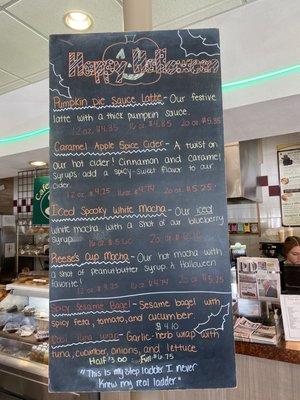 Happy Halloween
Pumpkin pie Sauce Latte - Our festive
latte with a thick pumpkin sauce.
12 oz. $4.85 16 oz $4.85 20 oz $5.35
Caramel Apple Spice Cider - A twist on
our hot cider! Cinnamon and caramel
syrups add a spicy-sweet flavor to our
cider.
12 oz $4.25 16 oz $4.74 20 oz $5.25
Iced Spooky White Mocha - Our iced
white mocha with a shot of our blueberry
syrup.
16 oz $5.60 20 oz
Reese's Cup Mocha - Our hot mocha with
a shot of peanutbutter syrup. A Halloween
favorite!
12 oz $4.74 20 oz
Spicy Sesame Bagel - Sesame bagel with
spicy feta, tomato, and cucumber.
$4.10
tuna wrap - Garlic-herb wrap with
tuna, cucumber, onions, and lettuce.
Half $3.00 Full $6.75
"This is my step ladder. I never
knew my real ladder."